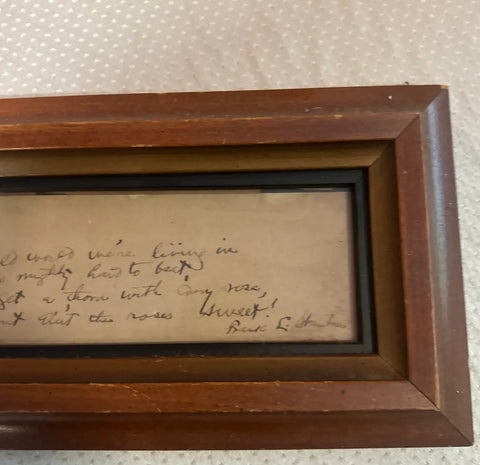 ld world we're living in
s mighty hard to beat,
get a thorn with every rose,
ut ain't the roses sweet!
Frank L. Stanton